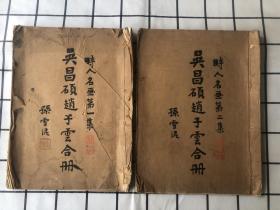 時人名画第一集
吳昌碩趙子雲合冊
孫雪泥
時人名画第二集
吳昌碩趙子雲合冊
孫雪泥